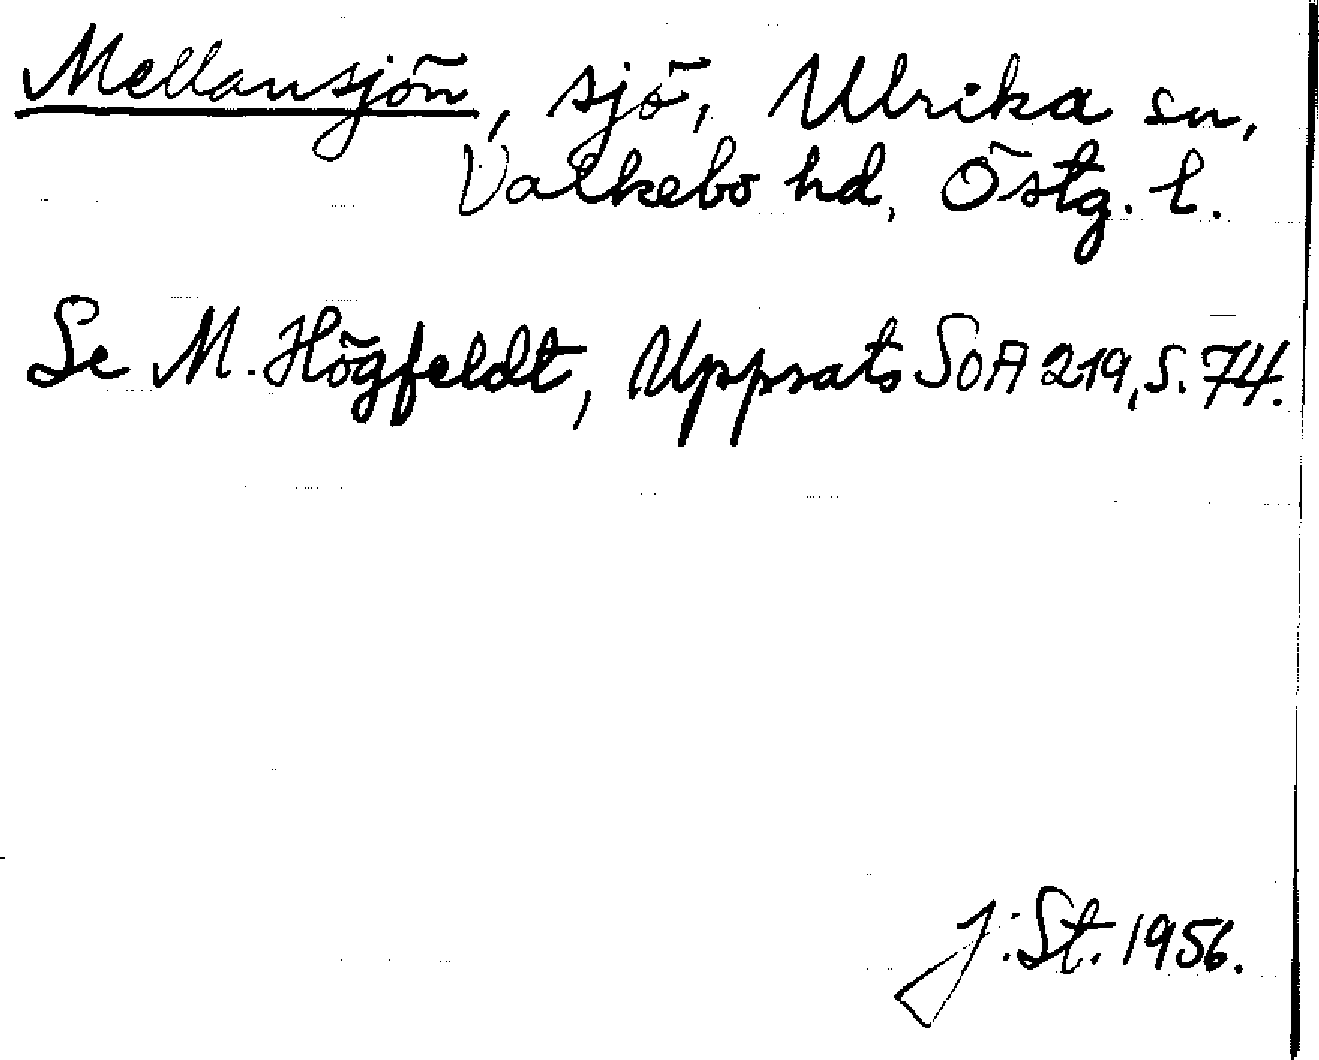 Mellansjön, sjö, Ulrika sn,
Valkebo hd, Östg. l.
Se M. Högfeldt, Uppsats SOA 219, s. 74.
J. St. 1956.